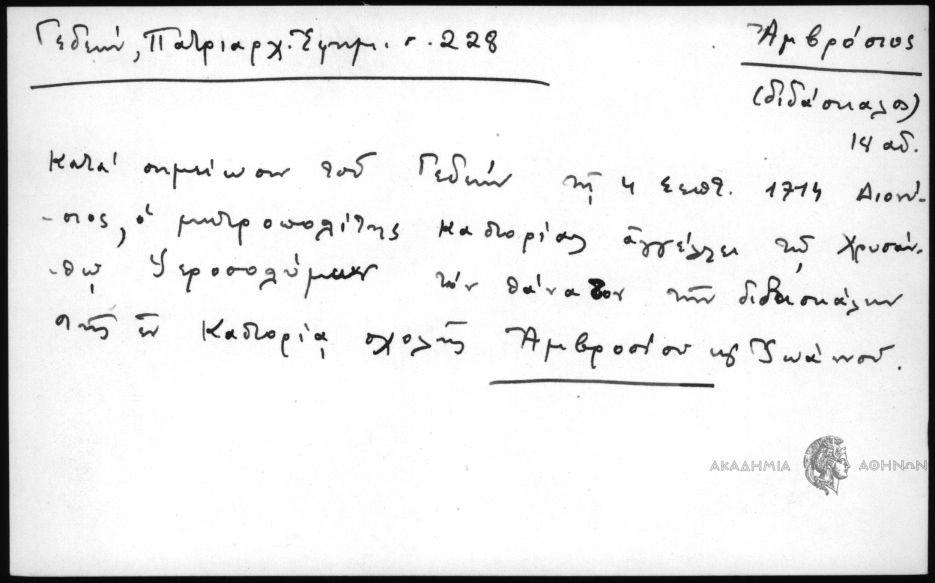 Γεδεών, Πατριαρχ. Ἐφημ. σ. 228
Ἀμβρόσιος
(διδάσκαλος)
18 αἰ.
Κατὰ σημείωσιν τοῦ Γεδεὼν τῇ 4 Σεπτ. 1714 Διονύ-
-σιος, ὁ μητροπολίτης Καστορίας ἀγγέλλει τῷ Χρυσάν-
-θῳ Ἱεροσολύμων τὸν θάνατον τῶν διδασκάλων
τῆς ἐν Καστορίᾳ σχολῆς Ἀμβροσίου κ̀ Ἰωάννου.
ΑΚΑΔΗΜΙΑ ΑΘΗΝΩΝ